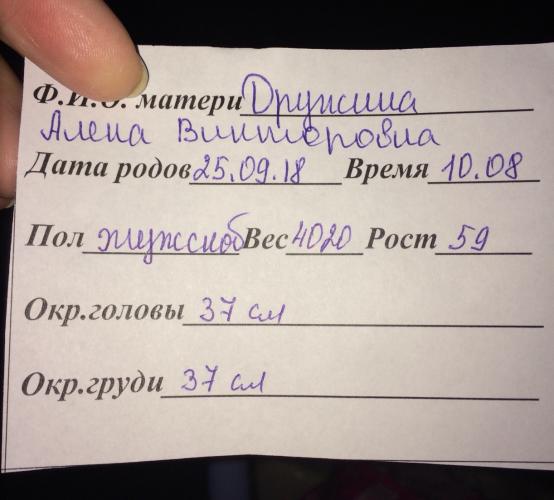 Ф.И.О. матери Дружина
Алена Викторовна
Дата родов 25.09.18 Время 10.08
Пол мужской Вес 4020 Рост 59
Окр.головы 37 см
Окр.груди 37 см